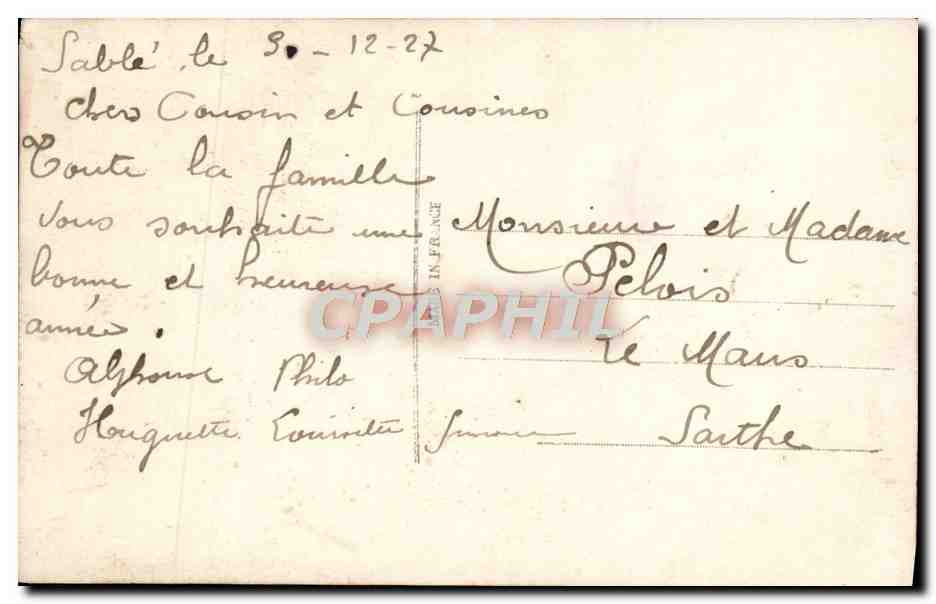 Sablé, le 30-12-27
chers Cousin et Cousines
Toute la famille
vous souhaite une
bonne et heureuse
année.
Alphonse Philo
Huguette Louisette Simone
MADE IN FRANCE
Monsieur et Madame
Pelois
Le Mans
Sarthe
CPAPHIL